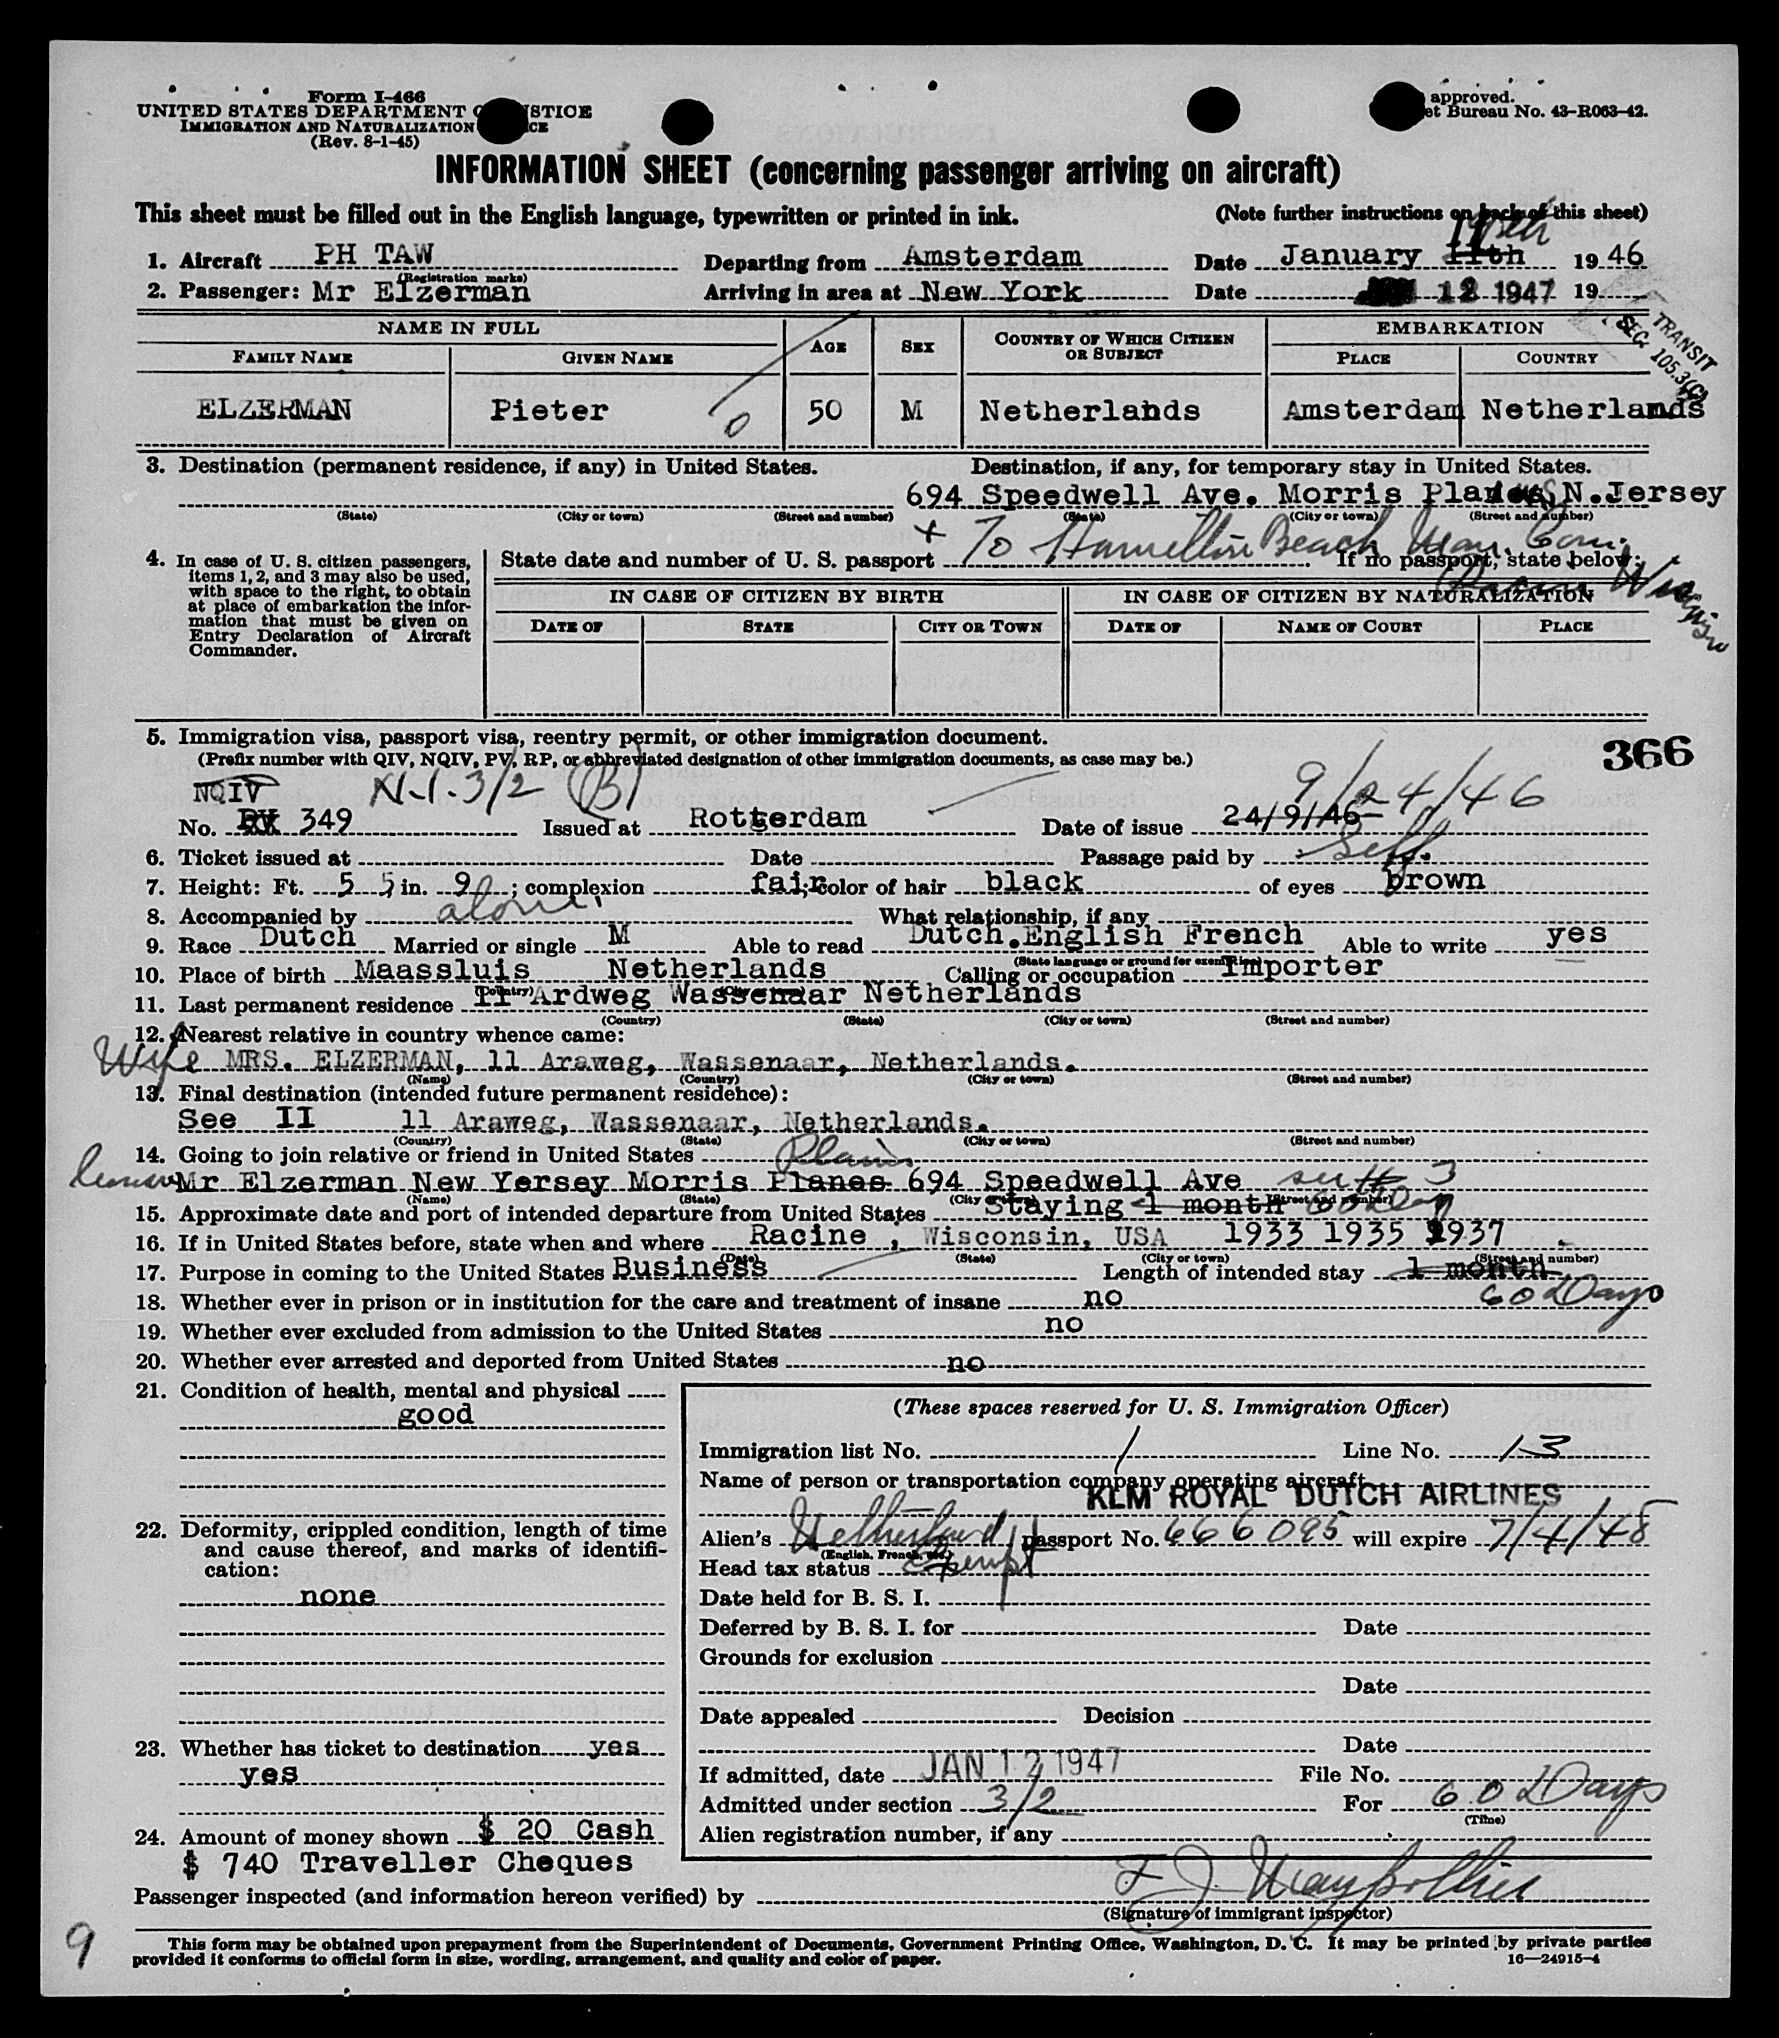 Form I-466
UNITED STATES DEPARTMENT O STICE
IMMIGRATION AND NATURALIZATION CE
(Rev. 8-1-45)
approved.
et Bureau No. 43-R063-42.
INFORMATION SHEET (concerning passenger arriving on aircraft)
This sheet must be filled out in the English language, typewritten or printed in ink.
(Note further instructions on back of this sheet)
1. Aircraft PH TAW Departing from Amsterdam Date January 11th 19 46
(Registration marks)
2. Passenger: Mr Elzerman Arriving in area at New York Date 12 1947 19
TRANSIT
SEC. 105.3(C)
NAME IN FULL AGE SEX COUNTRY OF WHICH CITIZEN OR SUBJECT EMBARKATION
FAMILY NAME GIVEN NAME PLACE COUNTRY
ELZERMAN Pieter 50 M Netherlands Amsterdam Netherlands
3. Destination (permanent residence, if any) in United States. Destination, if any, for temporary stay in United States.
694 Speedwell Ave. Morris Planes, N.Jersey
(State) (City or town) (Street and number) (State) (City or town) (Street and number)
+ To Hamilton Beach Man. Com.
Racine Wis
4. In case of U. S. citizen passengers, items 1, 2, and 3 may also be used, with space to the right, to obtain at place of embarkation the information that must be given on Entry Declaration of Aircraft Commander.
State date and number of U. S. passport If no passport, state below:
IN CASE OF CITIZEN BY BIRTH IN CASE OF CITIZEN BY NATURALIZATION
DATE OF STATE CITY OR TOWN DATE OF NAME OF COURT PLACE
5. Immigration visa, passport visa, reentry permit, or other immigration document.
(Prefix number with QIV, NQIV, PV, RP, or abbreviated designation of other immigration documents, as case may be.)
366
NQIV N-1-3/2 (B) 9/24/46
No. PV 349 Issued at Rotterdam Date of issue 24/9/46
6. Ticket issued at Date Passage paid by Self.
7. Height: Ft. 5 5 in. 9 ; complexion fair; color of hair black of eyes brown
8. Accompanied by alone. What relationship, if any
9. Race Dutch Married or single M Able to read Dutch.English French Able to write yes
(State language or ground for exemption)
10. Place of birth Maassluis Netherlands Calling or occupation Importer
(Country) (City or town)
11. Last permanent residence 11 Ardweg Wassenaar Netherlands
(Country) (State) (City or town) (Street and number)
12. Nearest relative in country whence came:
Wife MRS. ELZERMAN, 11 Araweg, Wassenaar, Netherlands.
(Name) (Country) (City or town) (Street and number)
13. Final destination (intended future permanent residence):
See II 11 Araweg, Wassenaar, Netherlands.
(Country) (State) (City or town) (Street and number)
14. Going to join relative or friend in United States Plains
Mr Elzerman New Yersey Morris Planes 694 Speedwell Ave
(Name) (State) (City or town) (Street and number)
15. Approximate date and port of intended departure from United States Staying 1 month 60 Day
16. If in United States before, state when and where Racine , Wisconsin, USA 1933 1935 1937
(Date) (State) (City or town) (Street and number)
17. Purpose in coming to the United States Business Length of intended stay 1 month
60 Days
18. Whether ever in prison or in institution for the care and treatment of insane no
19. Whether ever excluded from admission to the United States no
20. Whether ever arrested and deported from United States no
21. Condition of health, mental and physical
good
22. Deformity, crippled condition, length of time and cause thereof, and marks of identification:
none
23. Whether has ticket to destination yes
yes
24. Amount of money shown $ 20 Cash
$ 740 Traveller Cheques
(These spaces reserved for U. S. Immigration Officer)
Immigration list No. 1 Line No. 13
Name of person or transportation company operating aircraft
KLM ROYAL DUTCH AIRLINES
Alien's Netherland passport No. 666095 will expire 7/4/48
(English, French, etc.)
Head tax status Exempt
Date held for B. S. I.
Deferred by B. S. I. for Date
Grounds for exclusion
Date
Date appealed Decision
Date
If admitted, date JAN 12 1947 File No.
Admitted under section 3/2 For 60 Days
(Time)
Alien registration number, if any
Passenger inspected (and information hereon verified) by
(Signature of immigrant inspector)
9
This form may be obtained upon prepayment from the Superintendent of Documents, Government Printing Office, Washington, D. C. It may be printed by private parties
provided it conforms to official form in size, wording, arrangement, and quality and color of paper.
16—24915-4